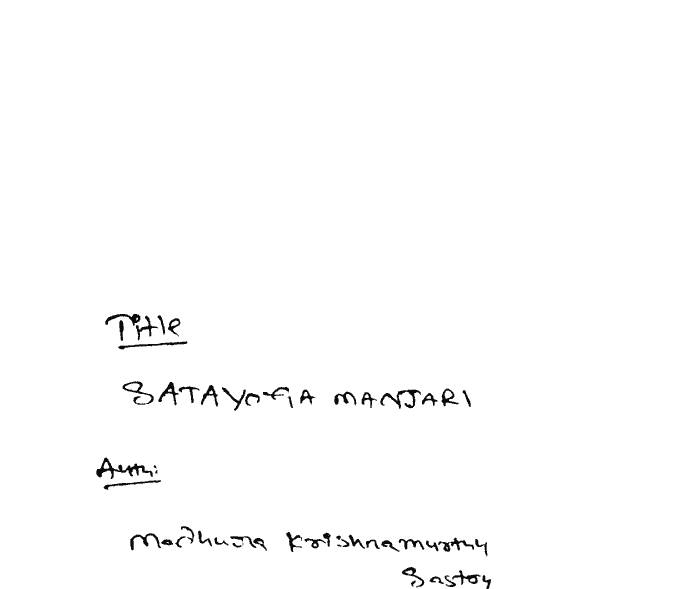 Title
SATAYOGA MANJARI
Auth:
Madhura Krishnamurthy
Sastry